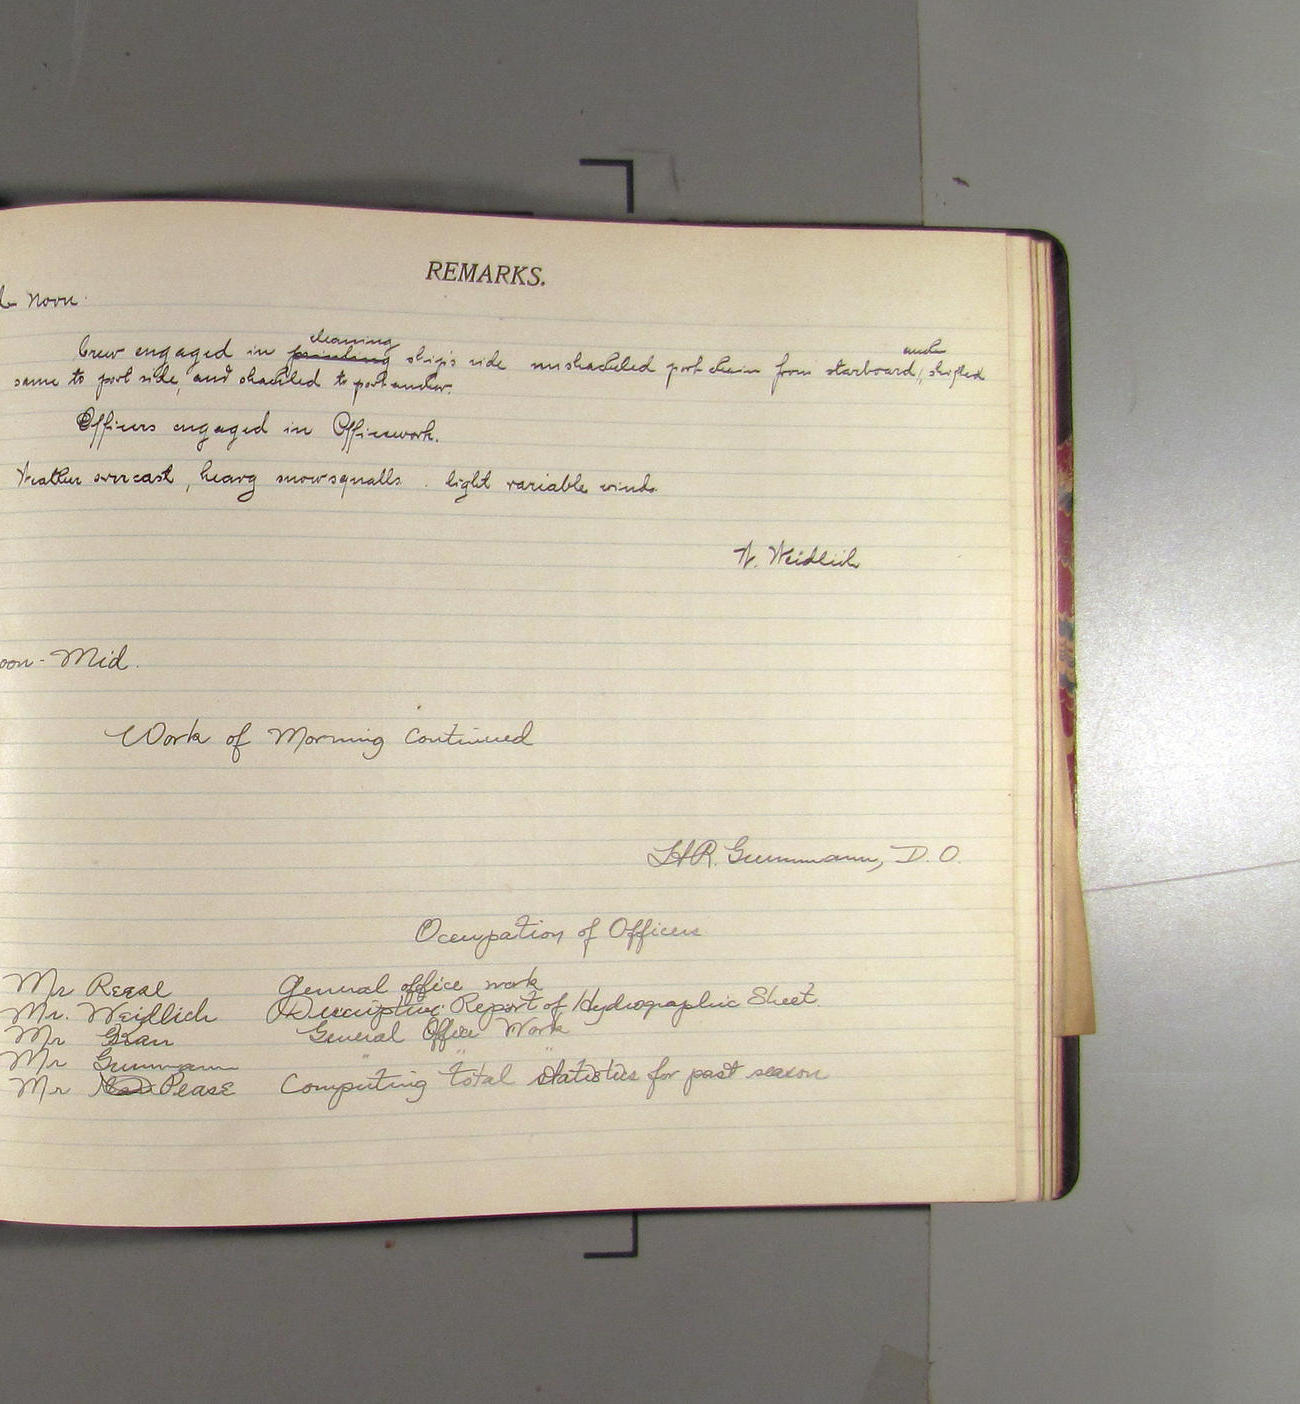 REMARKS.
noon.
Crew engaged in cleaning ship's side unshackled port chain from starboard, and shifted
same to port side, and shackled to port anchor.
Officers engaged in Officework.
Weather overcast, heavy snowsqualls. light variable winds.
W. Weidlich
oon - Mid.
Work of Morning continued
H.R. Gummann, D.O.
Occupation of Officers
Mr Regal General office work
Mr. Weidlich Descriptive Report of Hydrographic Sheet.
Mr Gran General Office Work
Mr Gummann " " "
Mr Pease Computing total statistics for past season